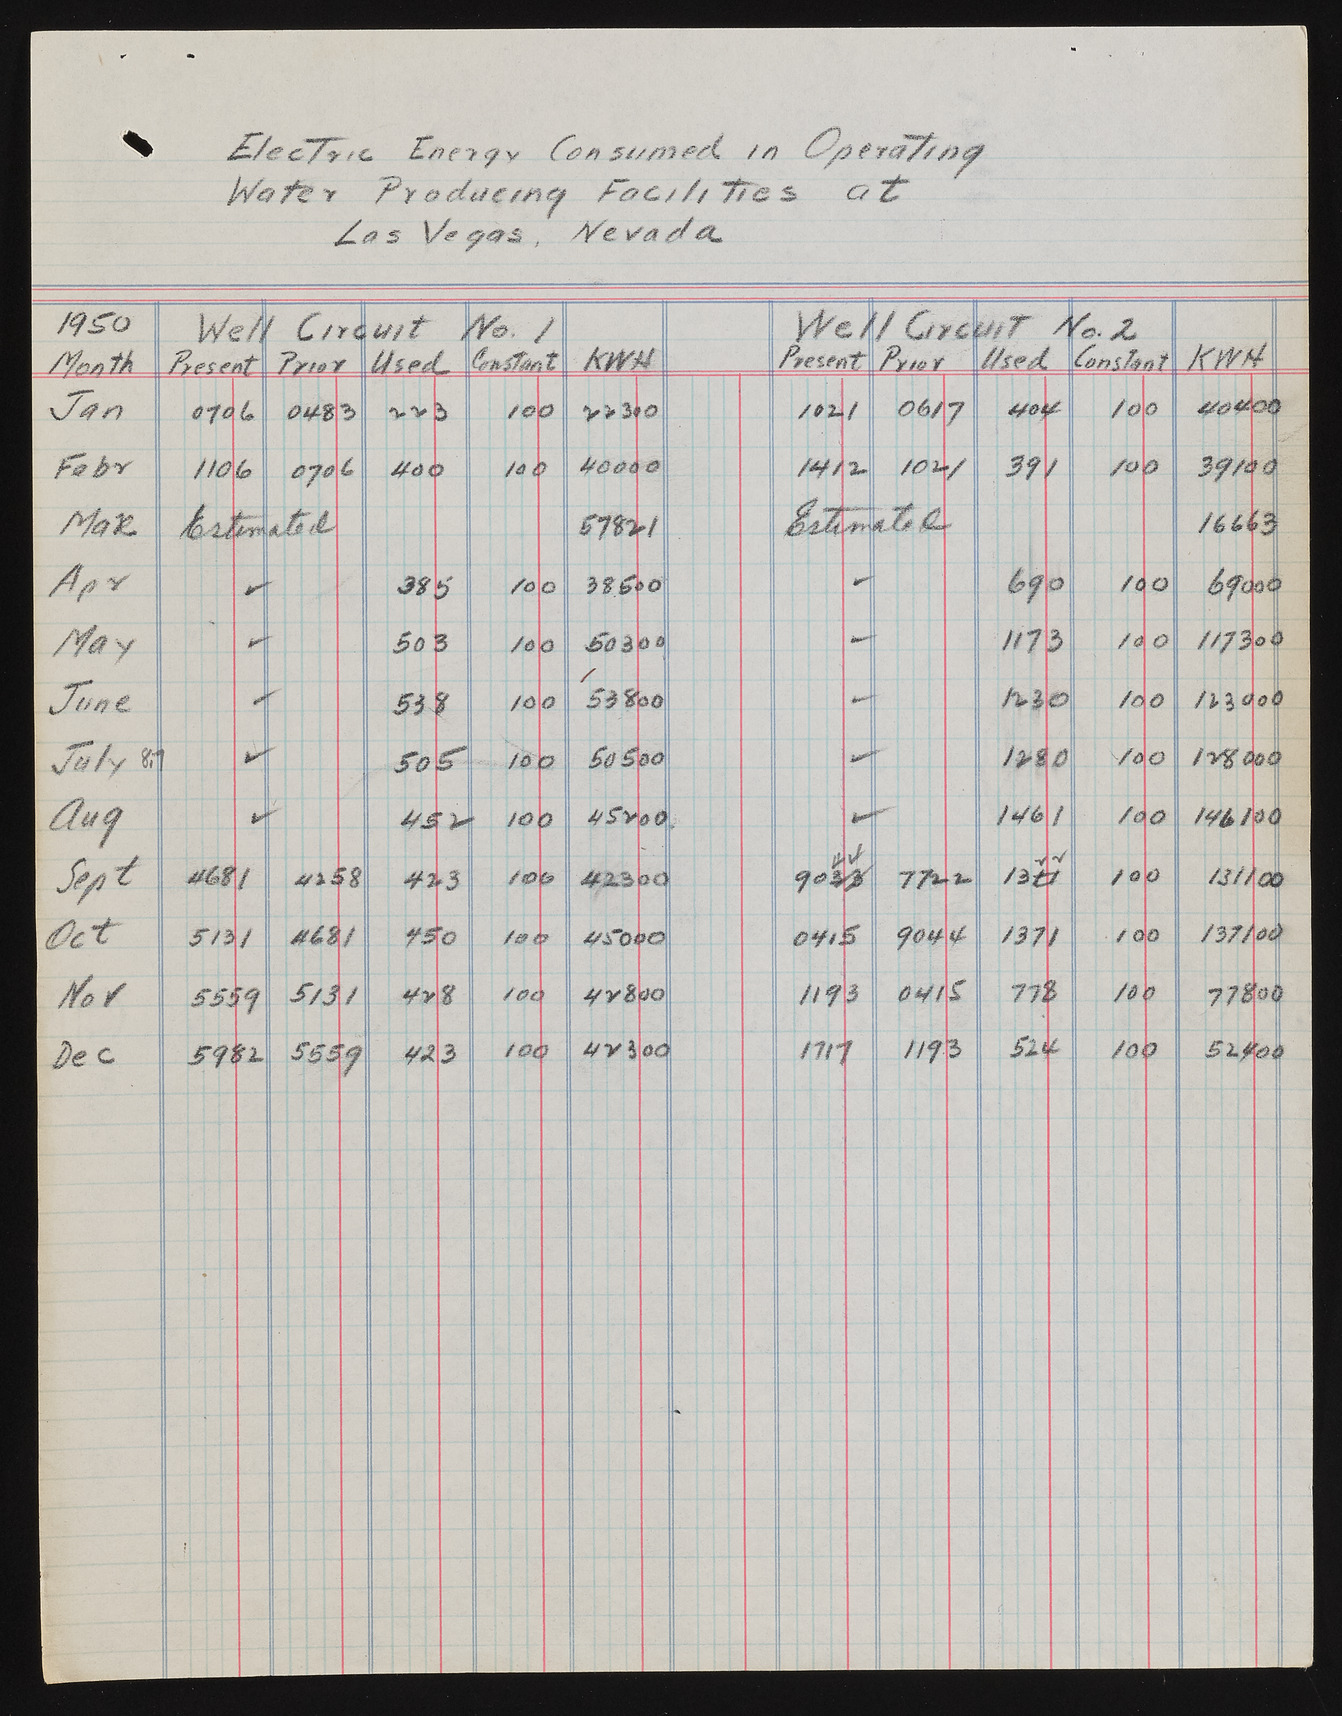 Electric Energy Consumed in Operating
Water Producing Facilities at
Las Vegas, Nevada
1950 Well Circuit No. 1 Well Circuit No. 2
Month Present Prior Used Constant KWH Present Prior Used Constant KWH
Jan 0706 0483 223 100 22300 1021 0617 404 100 40400
Febr 1106 0706 400 100 40000 1412 1021 391 100 39100
Mar Estimated 57821 Estimated 16663
Apr ✓ 385 100 38500 ✓ 690 100 69000
May ✓ 503 100 50300 ✓ 1173 100 117300
June ✓ 538 100 53800 ✓ 1230 100 123000
July ✓ 505 100 50500 ✓ 1280 100 128000
Aug ✓ 452 100 45200 ✓ 1461 100 146100
44 22
Sept 4681 4258 423 100 42300 9033 7722 1311 100 131100
Oct 5131 4681 450 100 45000 0415 9044 1371 100 137100
Nov 5559 5131 428 100 42800 1193 0415 778 100 77800
Dec 5982 5559 423 100 42300 1717 1193 524 100 52400